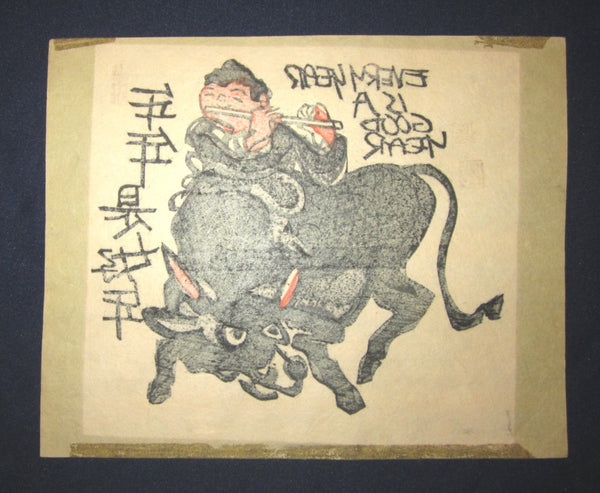 EVERY YEAR
IS A
GOOD
YEAR
年年是好年